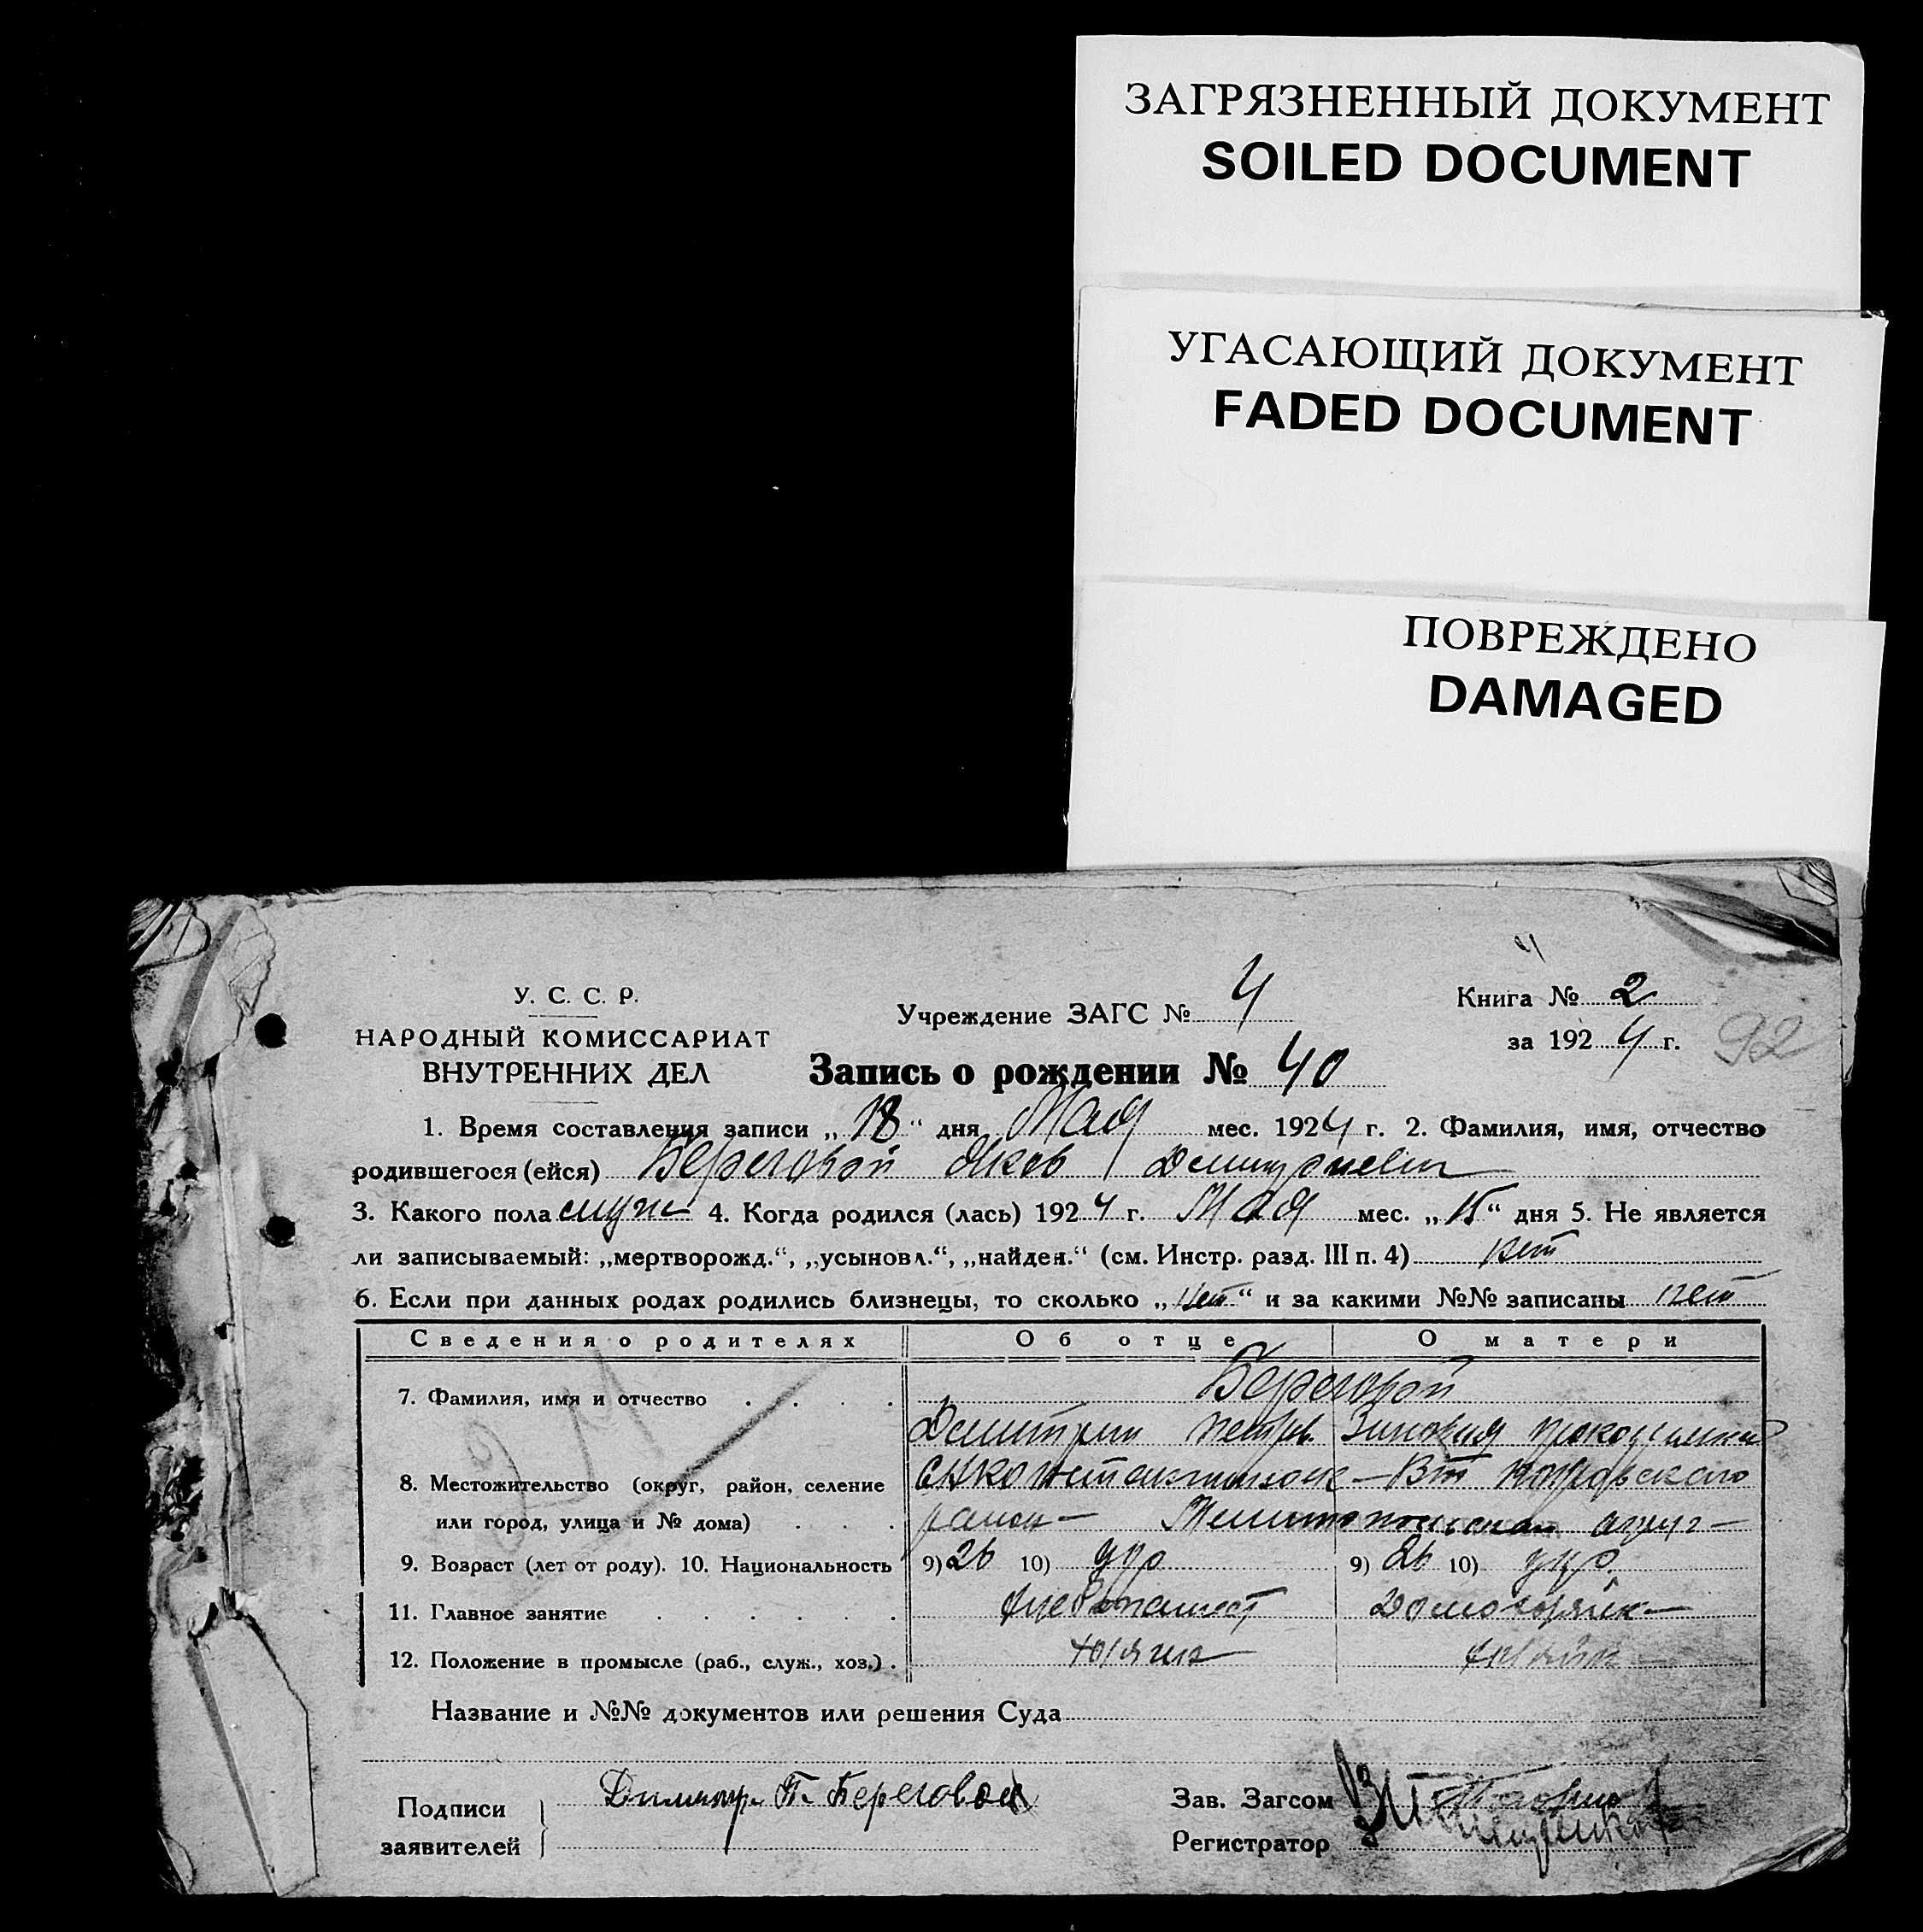 ЗАГРЯЗНЕННЫЙ ДОКУМЕНТ
SOILED DOCUMENT
УГАСАЮЩИЙ ДОКУМЕНТ
FADED DOCUMENT
ПОВРЕЖДЕНО
DAMAGED
У. С. С. Р.
НАРОДНЫЙ КОМИССАРИАТ
ВНУТРЕННИХ ДЕЛ
Учреждение ЗАГС № 4
Книга № 2
за 1924 г.
92
Запись о рождении № 40
1. Время составления записи „18“ дня Мая мес. 1924 г. 2. Фамилия, имя, отчество
родившегося (ейся) Береговой Яков Дмитриевич
3. Какого пола муж 4. Когда родился (лась) 1924 г. Мая мес. „15“ дня 5. Не является
ли записываемый: „мертворожд.“, „усыновл.“, „найден.“ (см. Инстр. разд. III п. 4) нет
6. Если при данных родах родились близнецы, то сколько „нет“ и за какими №№ записаны нет
Сведения о родителях Об отце О матери
7. Фамилия, имя и отчество Береговой
Дмитрий Петров.
8. Местожительство (округ, район, селение
или город, улица и № дома) район
9. Возраст (лет от роду). 10. Национальность 9) 26 10) укр 9) 26 10) укр.
11. Главное занятие хлебопашест
12. Положение в промысле (раб., служ., хоз.)
Название и №№ документов или решения Суда
Подписи
заявителей
Димитр. П. Береговой
Зав. Загсом
Регистратор